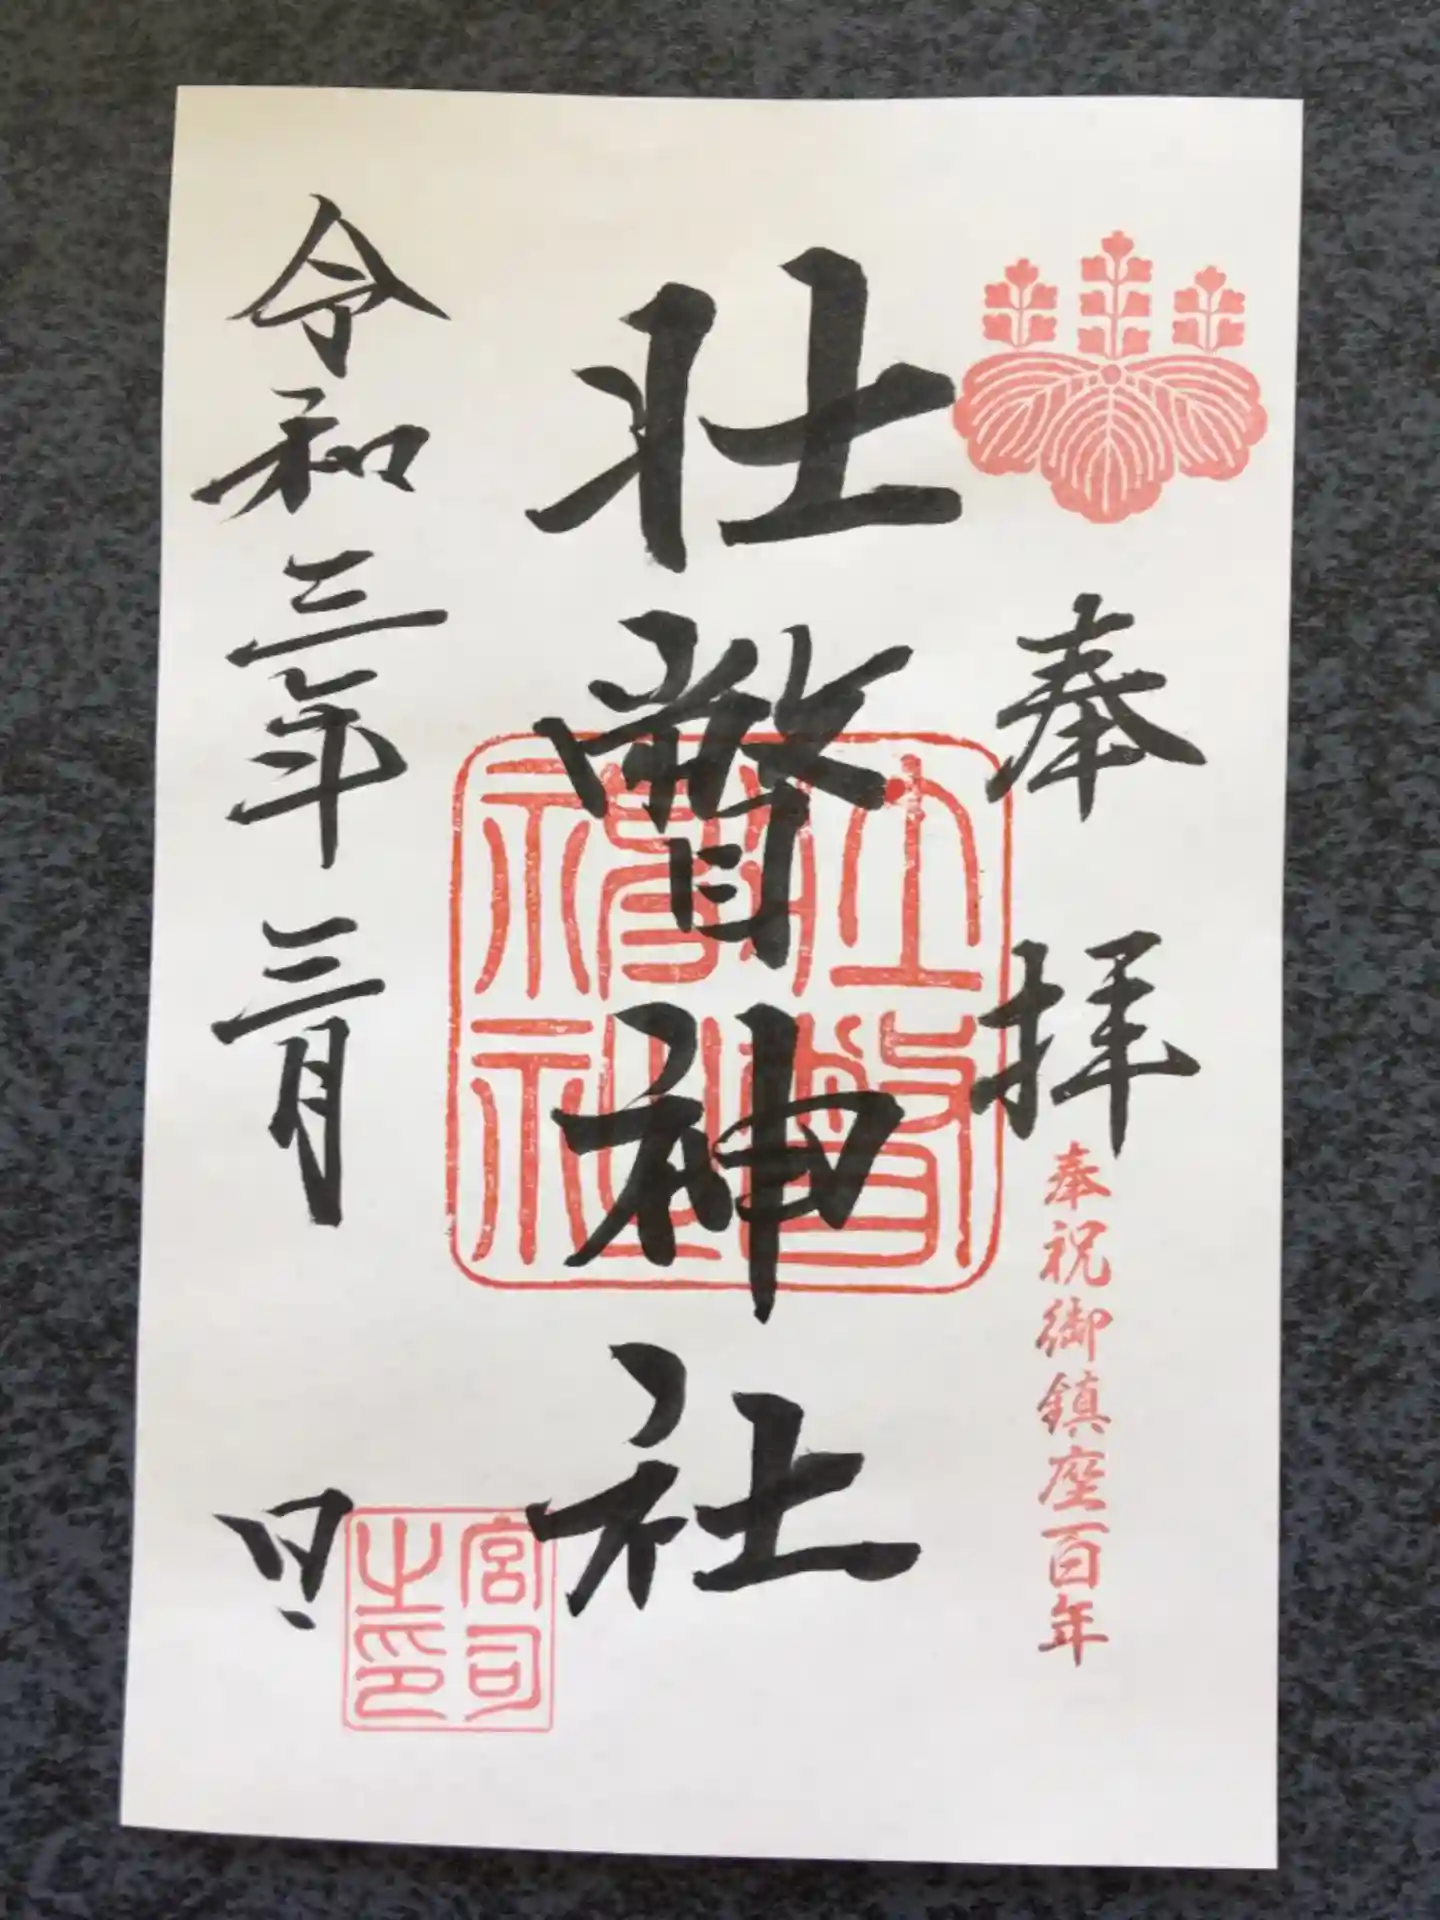 奉拝
奉祝御鎮座百年
壮瞥神社
壮瞥神社
令和三年三月 日
宮司之印